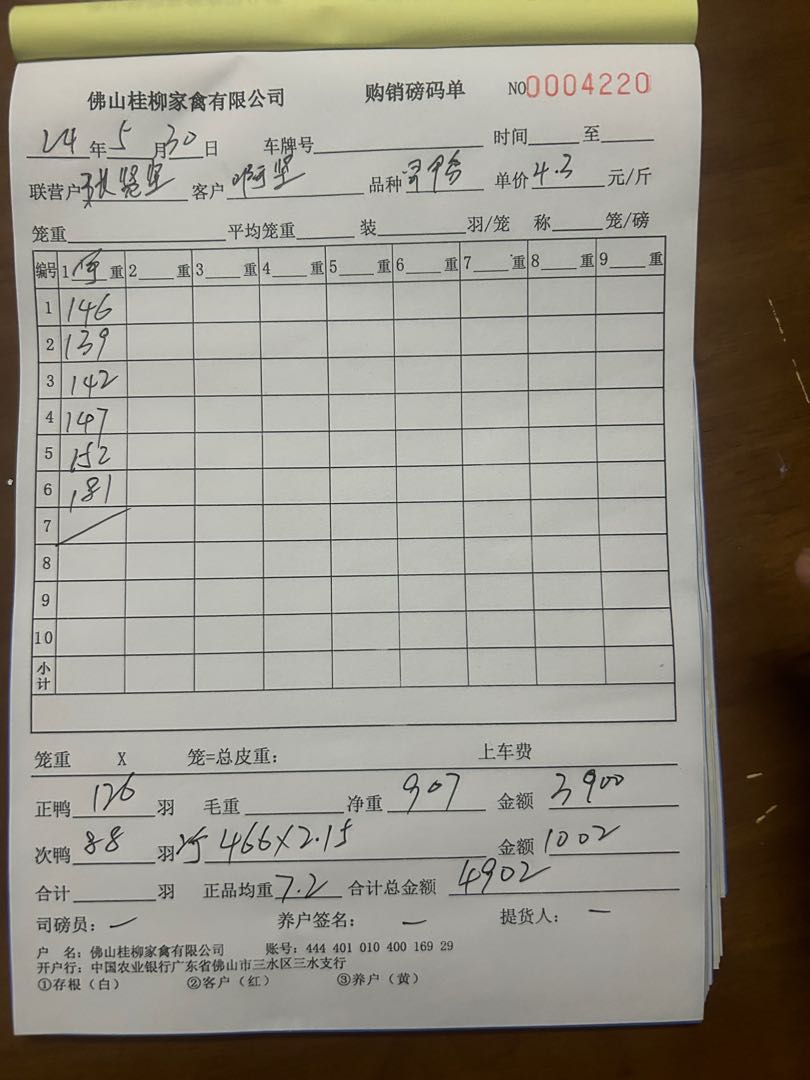 佛山桂柳家禽有限公司 购销磅码单 NO0004220
24年5月30日 车牌号 时间 至
联营户 客户 啊坚 品种 单价4.3元/斤
笼重 平均笼重 装 羽/笼 称 笼/磅
编号 1净重 2 重 3 重 4 重 5 重 6 重 7 重 8 重 9 重
1 146
2 139
3 142
4 147
5 152
6 181
7
8
9
10
小计
笼重 X 笼=总皮重: 上车费
正鸭126羽 毛重 净重907 金额3900
次鸭88羽 净466X2.15 金额1002
合计 羽 正品均重7.2 合计总金额4902
司磅员: 养户签名: 提货人:
户 名: 佛山桂柳家禽有限公司 账号: 444 401 010 400 169 29
开户行: 中国农业银行广东省佛山市三水区三水支行
①存根（白） ②客户（红） ③养户（黄）